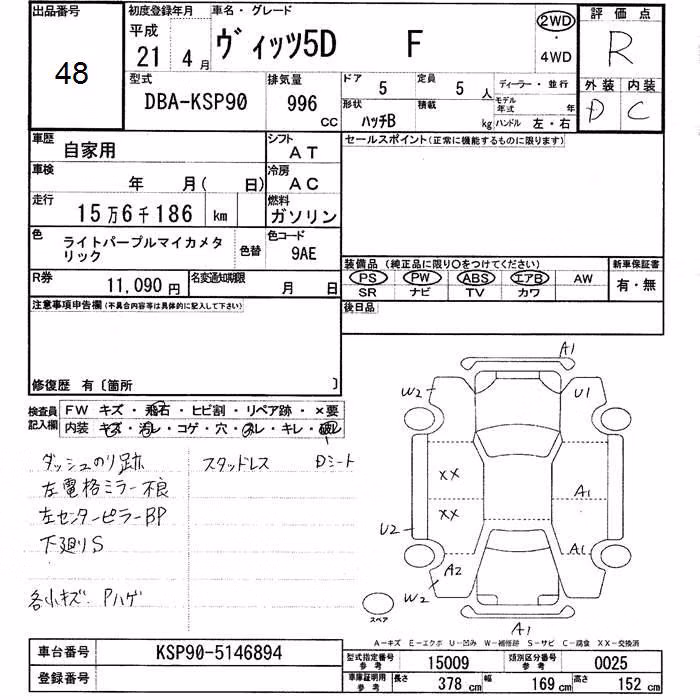 出品番号 初度登録年月 車名・グレード 2WD 評価点
48 平成 21 4月 ヴィッツ5D F 4WD R
型式 排気量 ドア 5 定員 5人 ディーラー・並行 外装 内装
DBA-KSP90 996 cc 形状 ハッチB 積載 kg モデル年式 年 D C
ハンドル 左・右
車歴 自家用 シフト AT セールスポイント(正常に機能するものに限ります)
車検 年 月( 日) 冷房 AC
走行 15万6千186 km 燃料 ガソリン
色 ライトパープルマイカメタリック 色替 色コード 9AE
装備品(純正品に限り○をつけてください) 新車保証書
R券 11,090円 名変通知期限 月 日 PS PW ABS エアB AW 有・無
SR ナビ TV カワ
注意事項申告欄(不具合内容等は具体的に記入して下さい) 後日品
修復歴 有〔箇所 〕
検査員記入欄 FW キズ・飛石・ヒビ割・リペア跡・×要
内装 キズ・汚レ・コゲ・穴・スレ・キレ・破レ
ダッシュのり跡 スタッドレス Dシート
左電格ミラー不良
左センターピラーBP
下廻りS
各小キズ.Pハゲ
A1
W2 U1
XX
XX A1
U2
A2 A1
W2
スペア A1
A-キズ E-エクボ U-凹み W-補修跡 S-サビ C-腐食 XX-交換済
車台番号 KSP90-5146894 型式指定番号 参考 15009 類別区分番号 参考 0025
登録番号 車庫証明用 参考 長さ 378 cm 幅 169 cm 高さ 152 cm